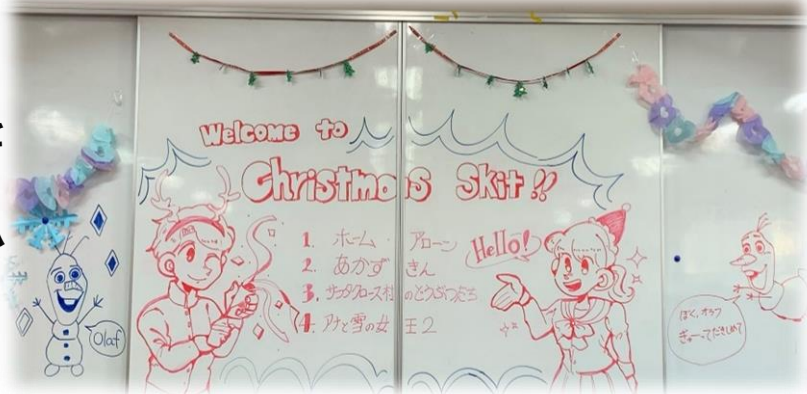 Welcome to
Christmas Skit!!
1. ホームアローン
2. あかずきん
3. サンタクロース村のどうぶつたち
4. アナと雪の女王2
Hello!
Olaf
ぼく、オラフ
ぎゅーってだきしめて